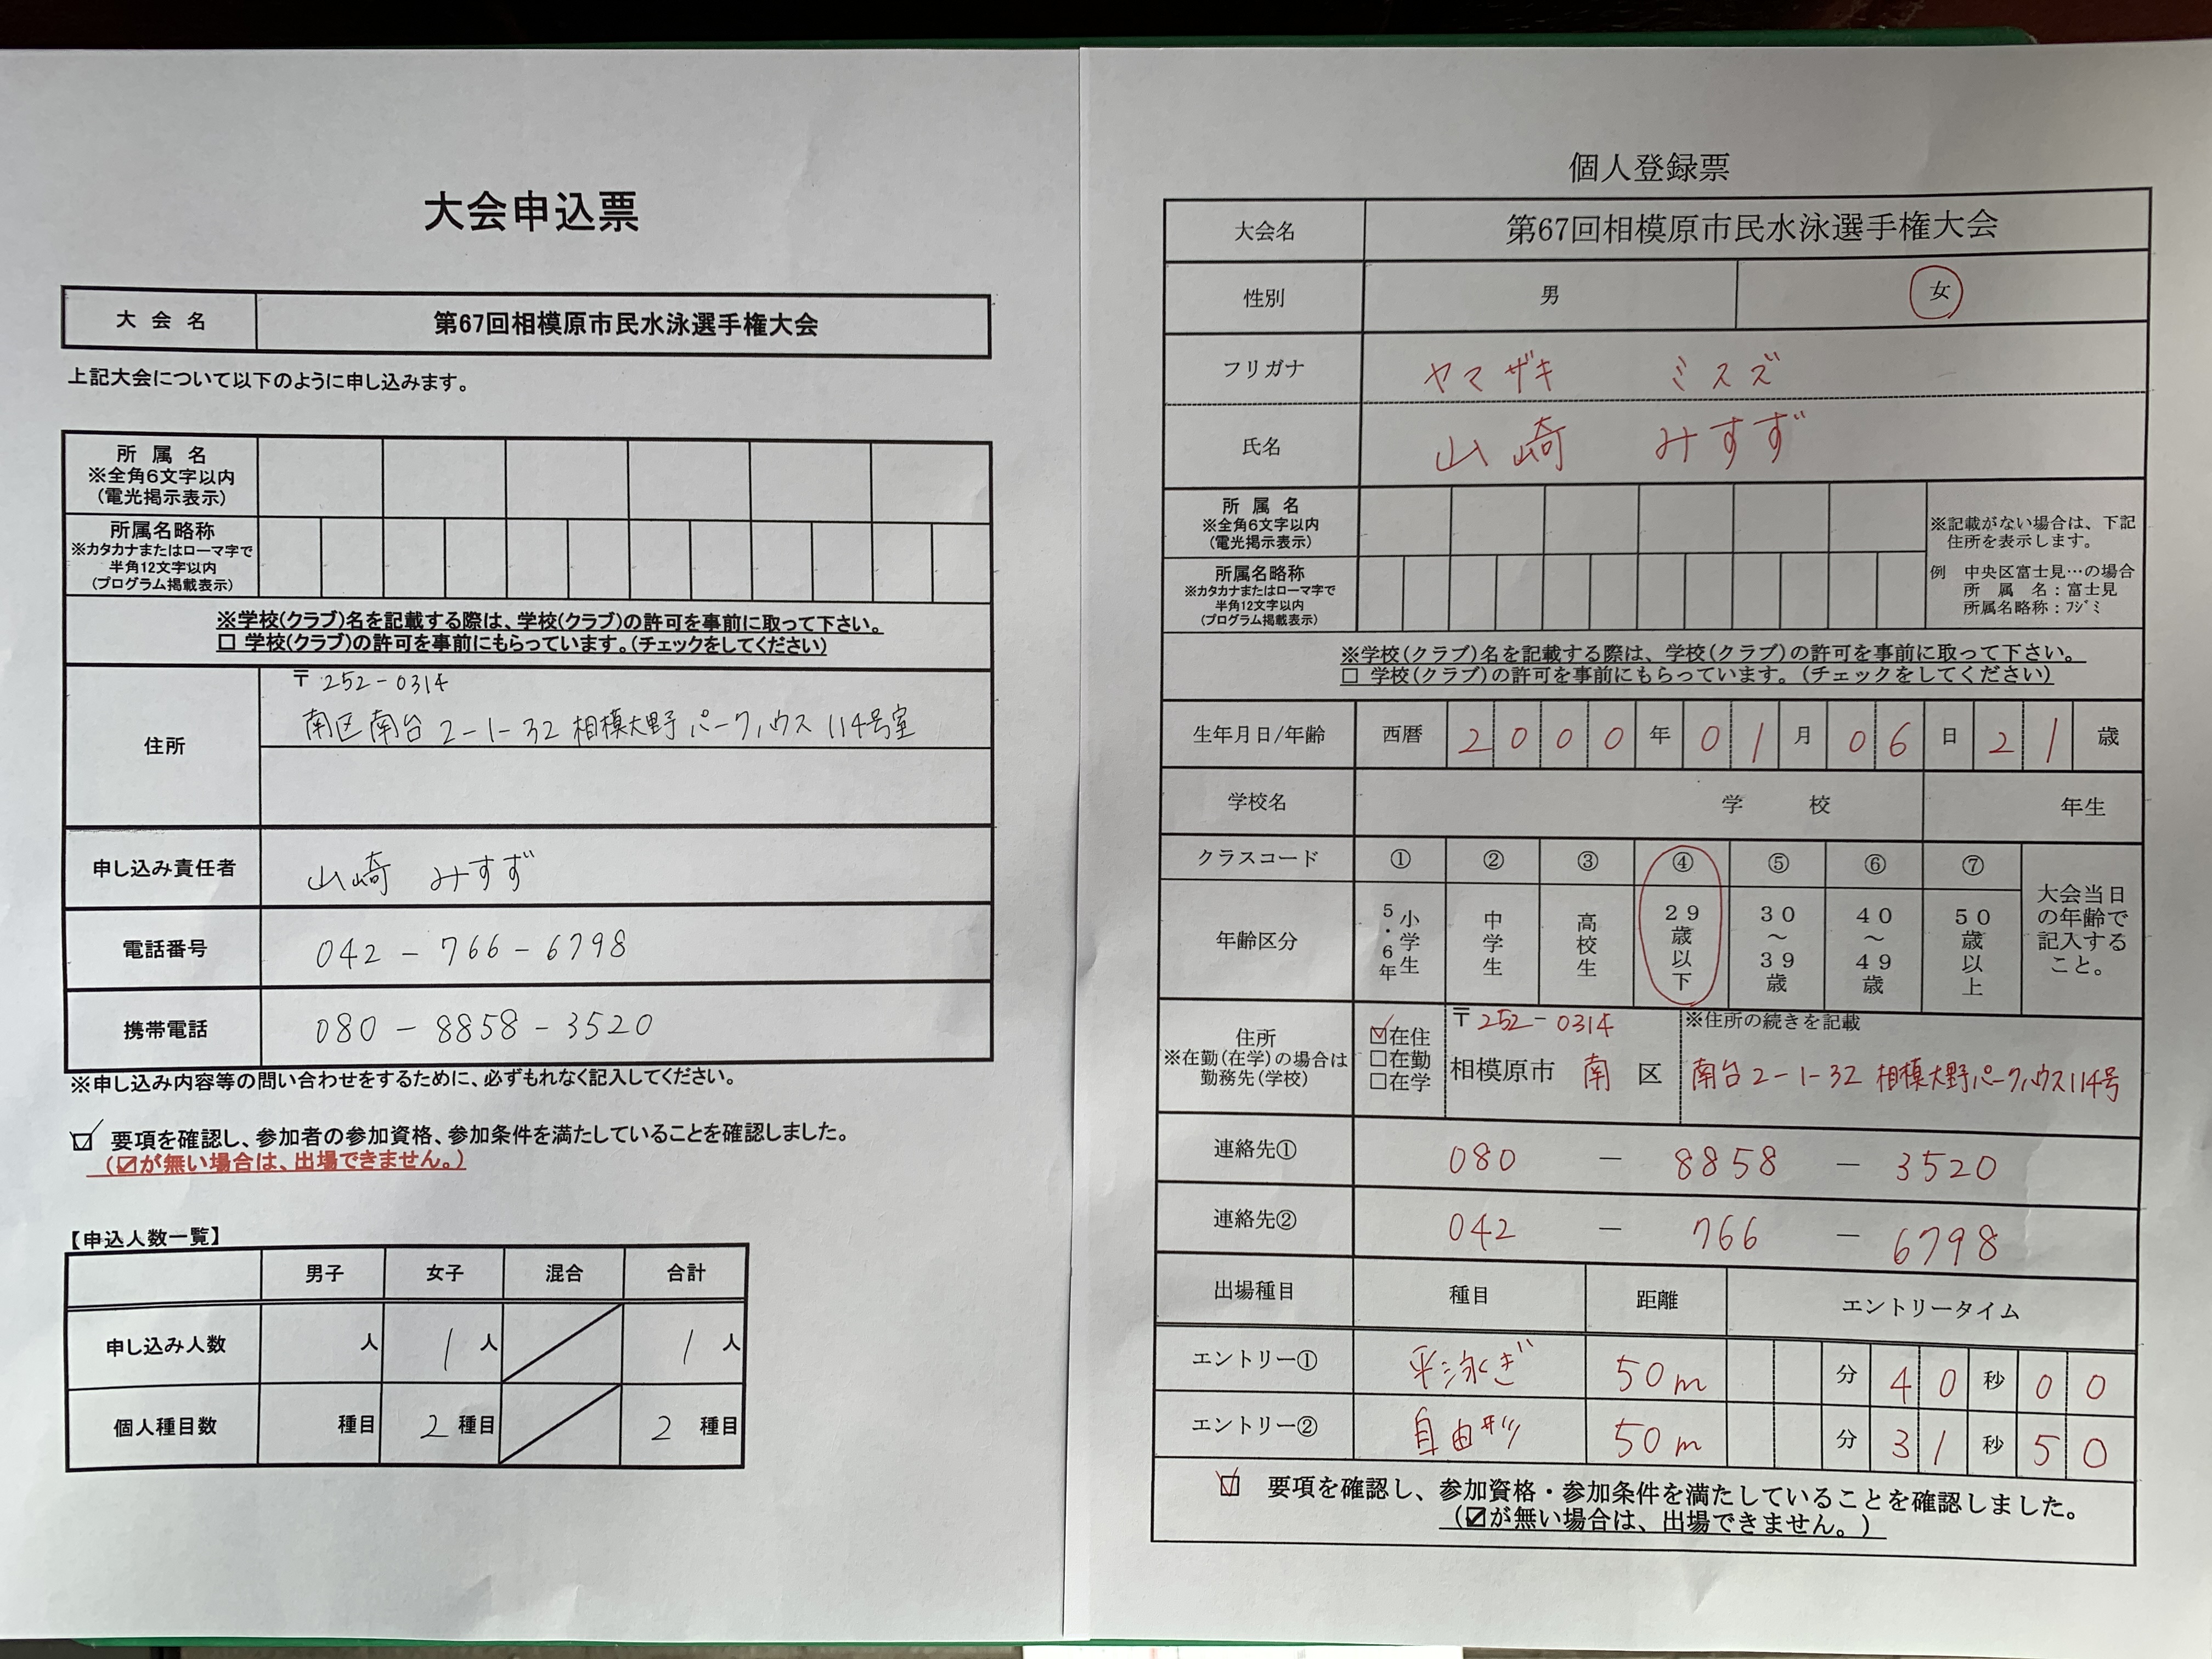 大会申込票
大会名 第67回相模原市民水泳選手権大会
上記大会について以下のように申し込みます。
所属名
※全角6文字以内
(電光掲示表示)
所属名略称
※カタカナまたはローマ字で
半角12文字以内
(プログラム掲載表示)
※学校(クラブ)名を記載する際は、学校(クラブ)の許可を事前に取って下さい。
□ 学校(クラブ)の許可を事前にもらっています。(チェックをしてください)
住所
〒252-0314
南区南台2-1-32 相模大野パークハウス 114号室
申し込み責任者 山崎 みすず
電話番号 042-766-6798
携帯電話 080-8858-3520
※申し込み内容等の問い合わせをするために、必ずもれなく記入してください。
☑ 要項を確認し、参加者の参加資格、参加条件を満たしていることを確認しました。
(☑が無い場合は、出場できません。)
【申込人数一覧】
男子 女子 混合 合計
申し込み人数 人 1人 1人
個人種目数 種目 2種目 2種目
個人登録票
大会名 第67回相模原市民水泳選手権大会
性別 男 女
フリガナ ヤマザキ ミスズ
氏名 山崎 みすず
所属名
※全角6文字以内
(電光掲示表示)
所属名略称
※カタカナまたはローマ字で
半角12文字以内
(プログラム掲載表示)
※記載がない場合は、下記
住所を表示します。
例 中央区富士見…の場合
所属名:富士見
所属名略称:フジミ
※学校(クラブ)名を記載する際は、学校(クラブ)の許可を事前に取って下さい。
□ 学校(クラブ)の許可を事前にもらっています。(チェックをしてください)
生年月日/年齢 西暦 2000年01月06日 21歳
学校名 学校 年生
クラスコード ① ② ③ ④ ⑤ ⑥ ⑦
年齢区分 小学5・6年生 中学生 高校生 29歳以下 30~39歳 40~49歳 50歳以上
大会当日の年齢で記入すること。
住所
※在勤(在学)の場合は
勤務先(学校)
☑在住
□在勤
□在学
〒252-0314
相模原市 南 区
※住所の続きを記載
南台2-1-32 相模大野パークハウス114号
連絡先① 080 - 8858 - 3520
連絡先② 042 - 766 - 6798
出場種目 種目 距離 エントリータイム
エントリー① 平泳ぎ 50m 分 40秒00
エントリー② 自由形 50m 分 31秒50
☑ 要項を確認し、参加資格・参加条件を満たしていることを確認しました。
(☑が無い場合は、出場できません。)